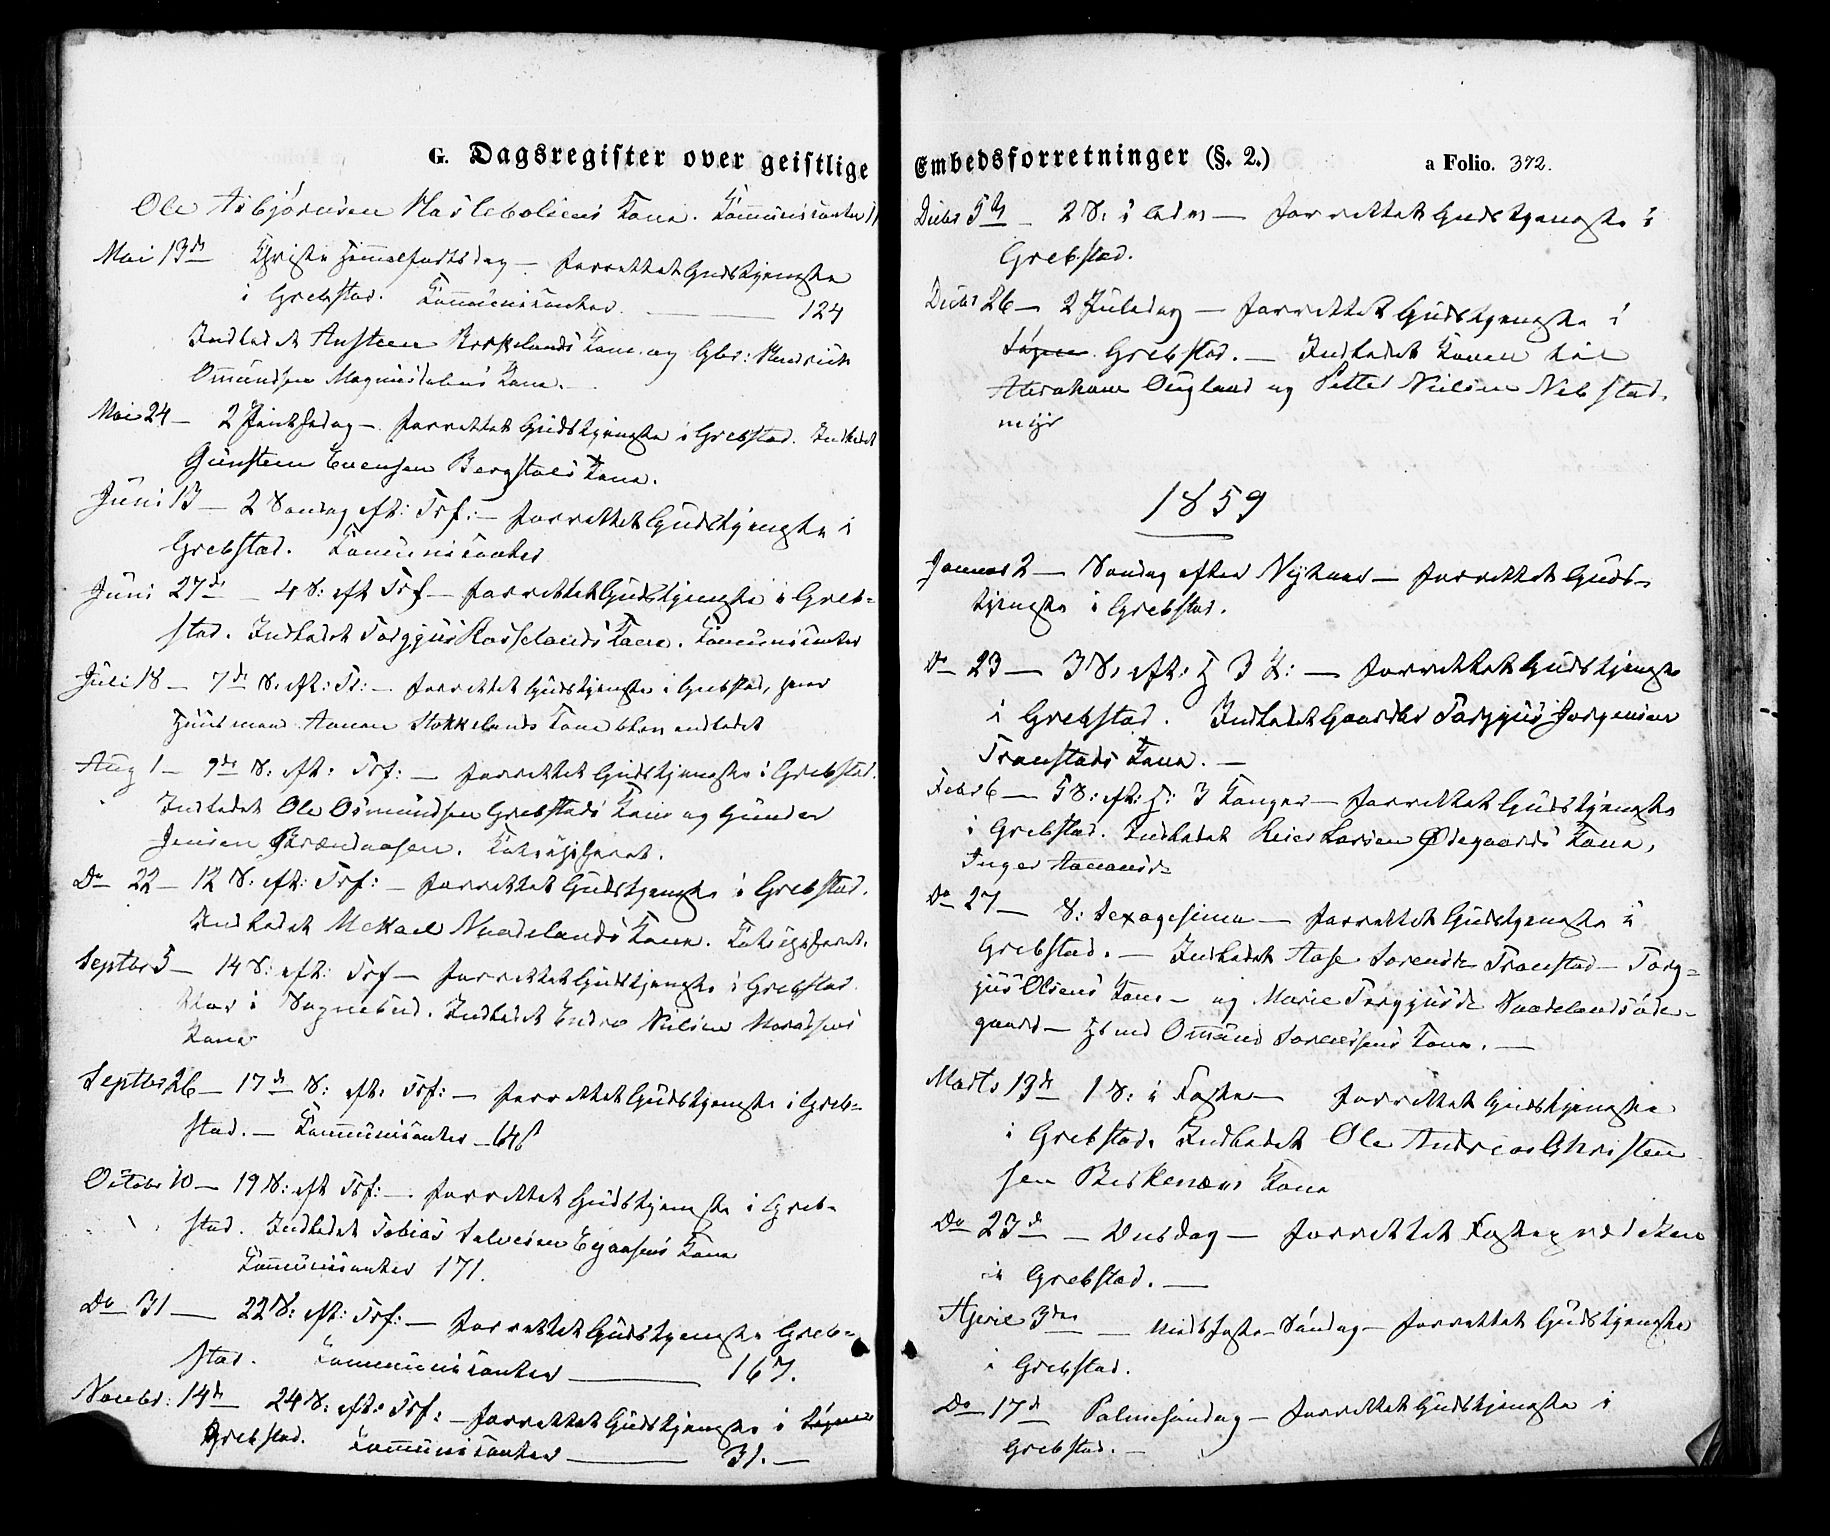 G. Dagsregister over geistlige
Ole Asbjørnsen Hasleboliens Kone. Kommunicanter
Mai 13de Christi Himmelfartsdag — forrettet Gudstjeneste
i Grebstad. Kommunicanter. — 124
Indledet Austeen Birkelands Kone og Gbr: Hendrich
Omundsen Magnusdalens Kone. —
Mai 24 — 2 Pintsedag — forrettet Gudstjeneste i Grebstad. Indledet
Gunsteen Evensen Bergstøls Kone.
Juni 13 — 2 Søndag eft: Trf: — forrettet Gudstjeneste i
Grebstad. Kommunicanter
Juni 27de — 4 S: eft Trf — forrettet Gudstjeneste i Greb-
stad. Indledet Torgjus Rosselands Kone. Communicanter
Juli 18 — 7de S: eft: Tr: — forrettet Gudstjeneste i Grebstad, hvor
Huusmand Aanon Stokkelands Kone blev indledet
Aug 1 — 9de S: eft: Trf: — forrettet Gudstjeneste i Grebstad.
Indledet Ole Osmundsen Grebstads Kone og Gunder
Jensen Brændaasen. Katechiseret.
Do 22 — 12 S: eft: Trf: — forrettet Gudstjeneste i Grebstad.
Indledet Mekael Naadelands Kone. Katechiseret.
Septbr 5 — 14 S: eft: Trf — forrettet Gudstjeneste i Grebstad.
Var i Sognebud. Indledet Endre Nielsen
Kone
Septbr 26 — 17de S: eft: Trf: — forrettet Gudstjeneste i Greb-
stad. — Kommunicanter —
Octobr 10 — 19 S: eft Trf: — forrettet Gudstjeneste i Greb-
stad. Indledet Tobias Salvesen Egaasens Kone
Kommunicanter 171.
Do 31 — 22 S: eft: Trf: — forrettet Gudstjeneste Greb-
stad. Kommunicanter — 167.
Novbr: 14de 24 S: eft: Trf: — forrettet Gudstjeneste i Søgne
Grebstad. Kommunicanter — 31. —
Embedsforretninger (§. 2.) a Folio. 372.
Decbr 5te — 2 S: i Adv — forrettet Gudstjeneste i
Grebstad.
Decbr 26 — 2 Juledag — forrettet Gudstjeneste i
Søgne Grebstad. — Indledet Konen til
Abraham Øugland og Petter Nielsen Nebstad-
myr
1859
Januar 2 — Søndag efter Nytaar — forrettet Guds-
tjeneste i Grebstad.
Do 23 — 3 S: eft: H 3 K: — forrettet Gudstjeneste
i Grebstad. Indledet Gaardbr Torgjus Jørgensen
Tronstads Kone. —
Febr 6 — 5 S: eft: H: 3 Konger — forrettet Gudstjeneste
i Grebstad. Indledet Reier Larsen Ødegaards Kone,
Inger Aanonsd.
Do 27 — S: Sexagesima — forrettet Gudstjeneste i
Grebstad. — Indledet Aase Sørensd. Tronstad — Torg-
jus Olsens Kone — og Marie Torgjusd. Naadelandsøde-
gaard — Hsmd Omund Sørensens Kone. —
Marts 13de 1 S: i Faste — forrettet Gudstjeneste
i Grebstad. Indledet Ole Andreas Christen
sen Birkenæs Kone
Do 23de — Onsdag — forrettet Fasteprædiken
i Grebstad. —
April 3die — Midfaste-Søndag — forrettet Gudstjeneste
i Grebstad.
Do 17de Palmesøndag — forrettet Gudstjeneste i
Grebstad. —